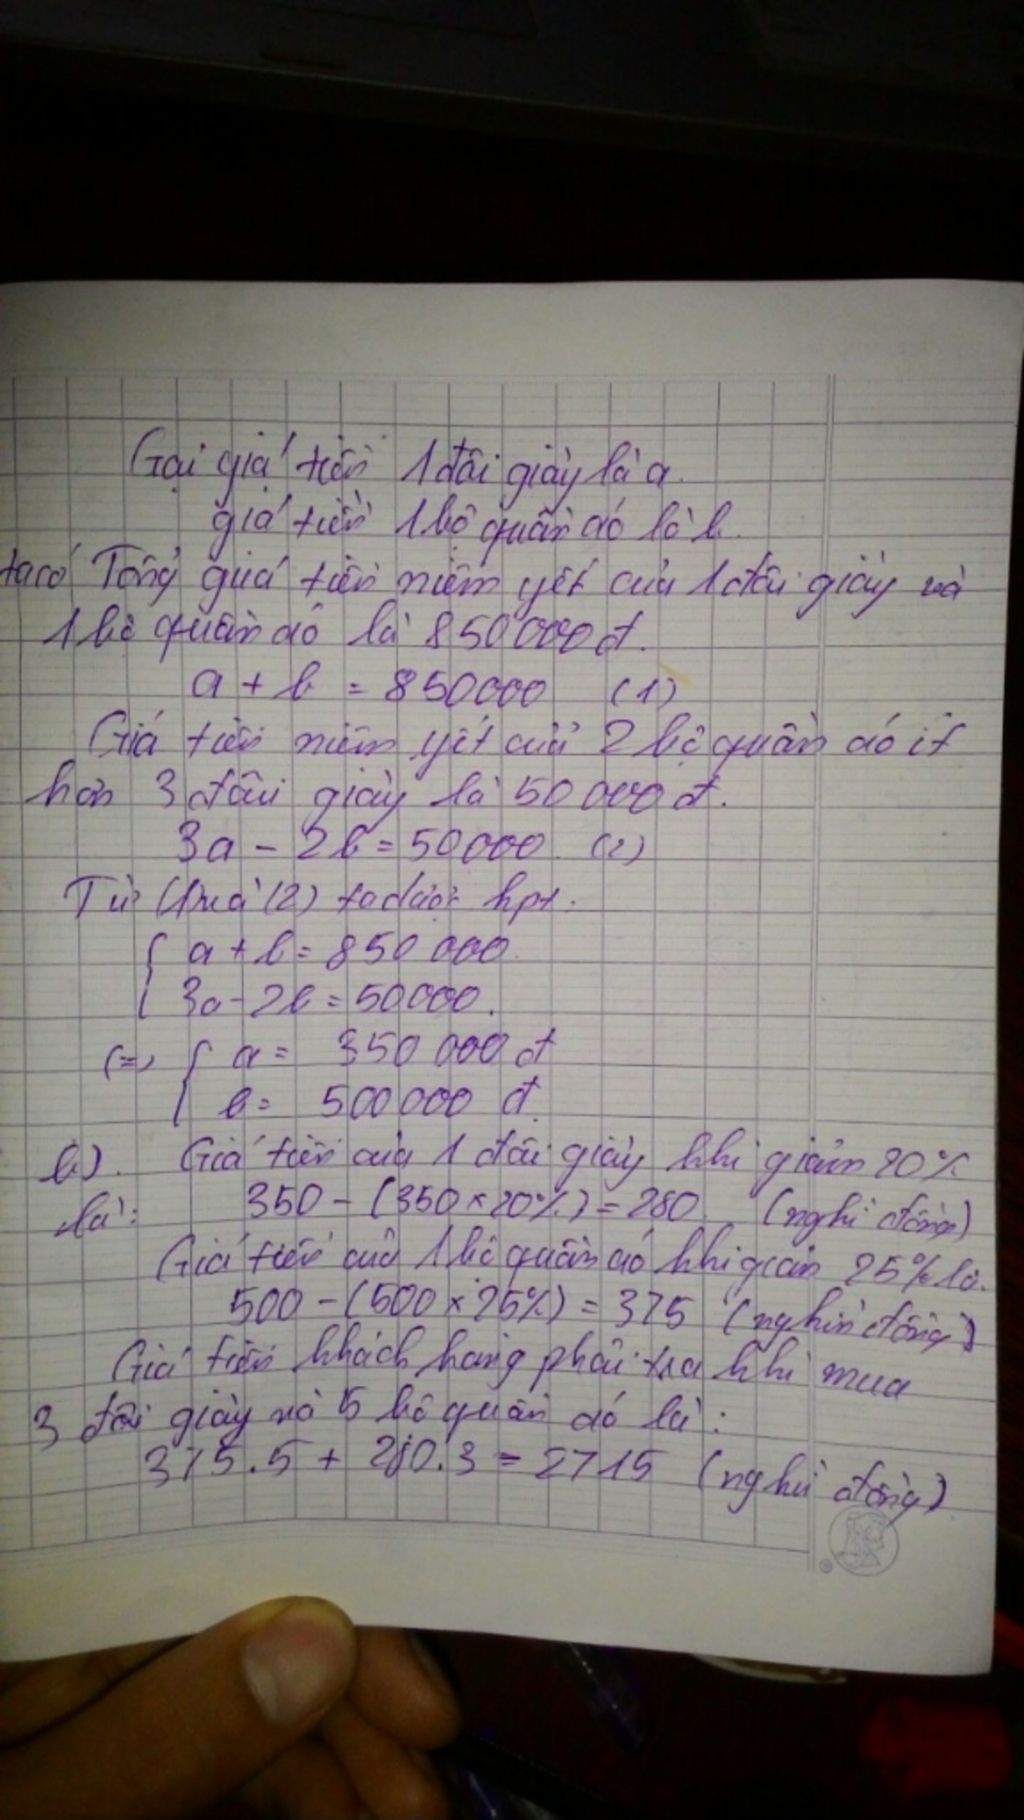 Gọi giá tiền 1 đôi giày là a.
giá tiền 1 bộ quần áo là b
ta có Tổng giá tiền niêm yết của 1 đôi giày và
1 bộ quần áo là 850000 đ.
a + b = 850000 (1)
Giá tiền niêm yết của 2 bộ quần áo ít
hơn 3 đôi giày là 50000 đ.
3a - 2b = 50000 (2)
Từ (1) và (2) ta được hpt:
a + b = 850 000.
3a - 2b = 50000.
(=) a = 350 000 đ
b = 500 000 đ
b). Giá tiền của 1 đôi giày khi giảm 20%
là: 350 - (350 × 20%) = 280 (nghì đồng)
Giá tiền của 1 bộ quần áo khi giảm 25% là.
500 - (500 × 25%) = 375 (nghìn đồng)
Giá tiền khách hàng phải trả khi mua
3 đôi giày và 5 bộ quần áo là:
375.5 + 280.3 = 2715 (nghì đồng)